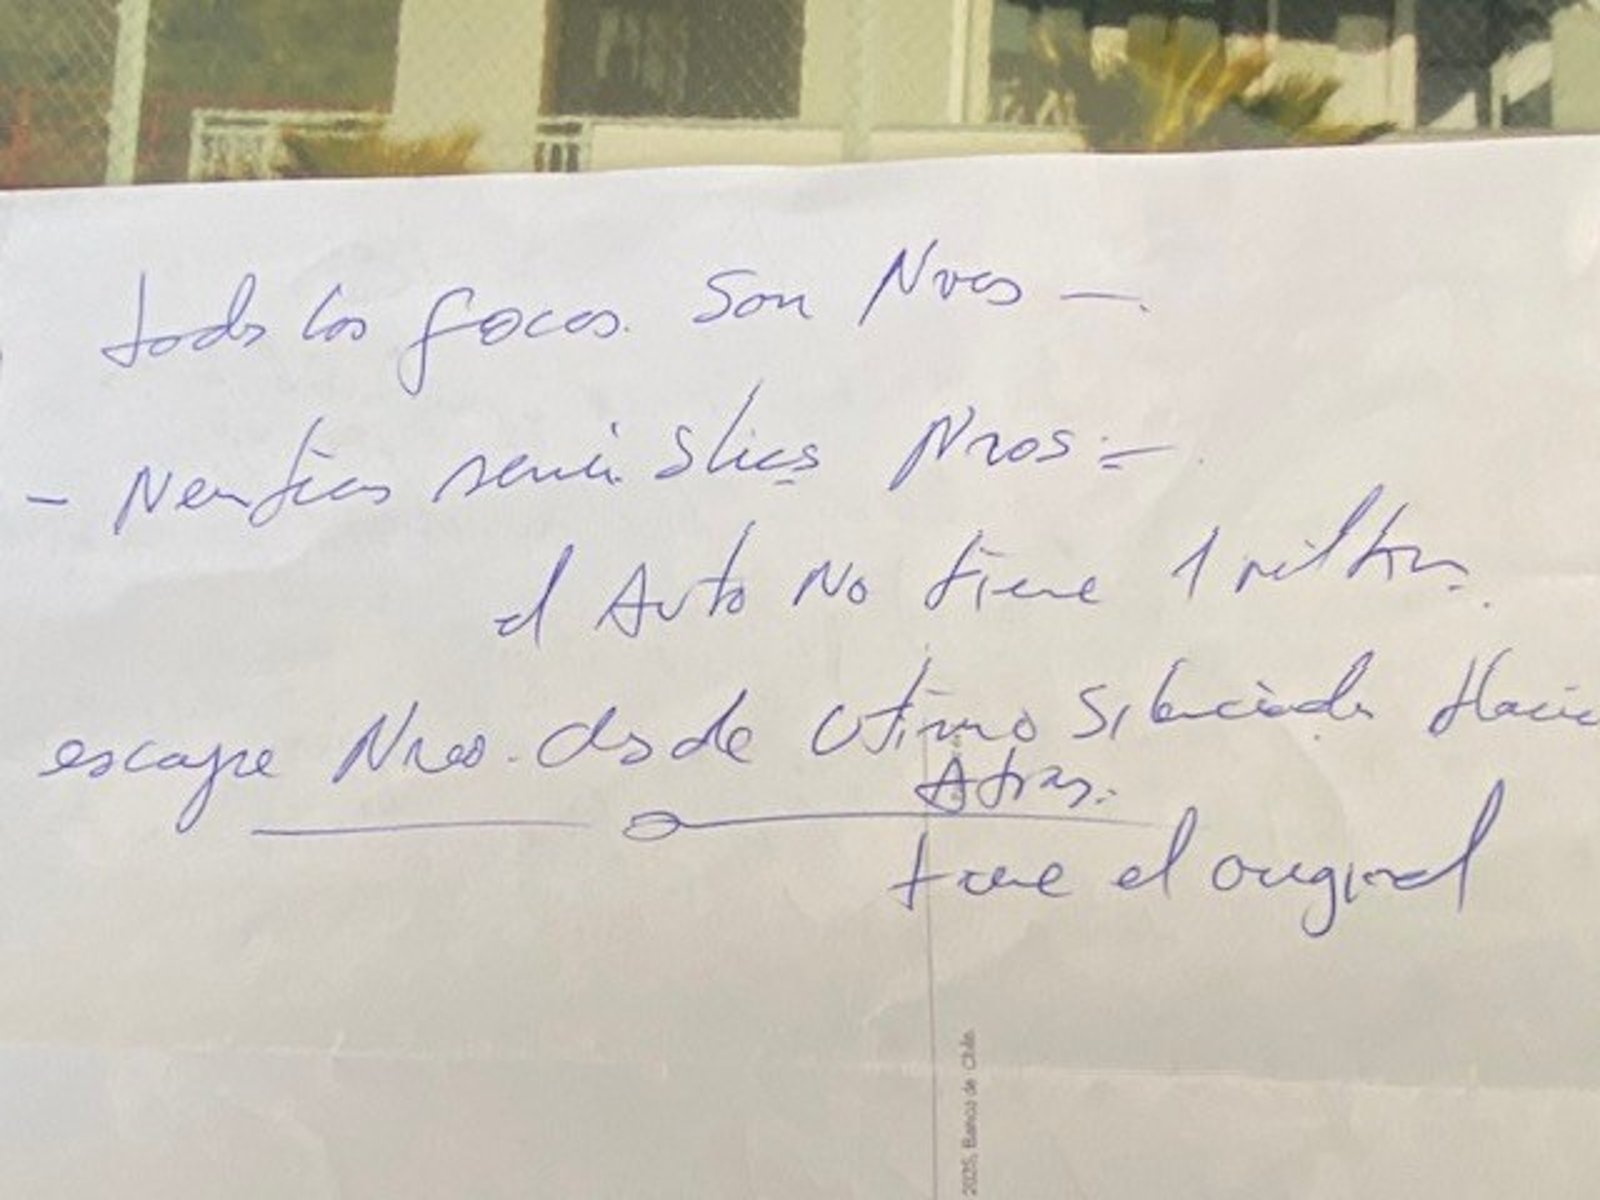 todos los focos. Son Nvos —.
- Neuticos semi Slics Nros =
el Auto No tiene 1 rilton.
escape Nvo. desde utimo Silenciador Hacia
Atras.
trae el original
2025, Banco de Chile